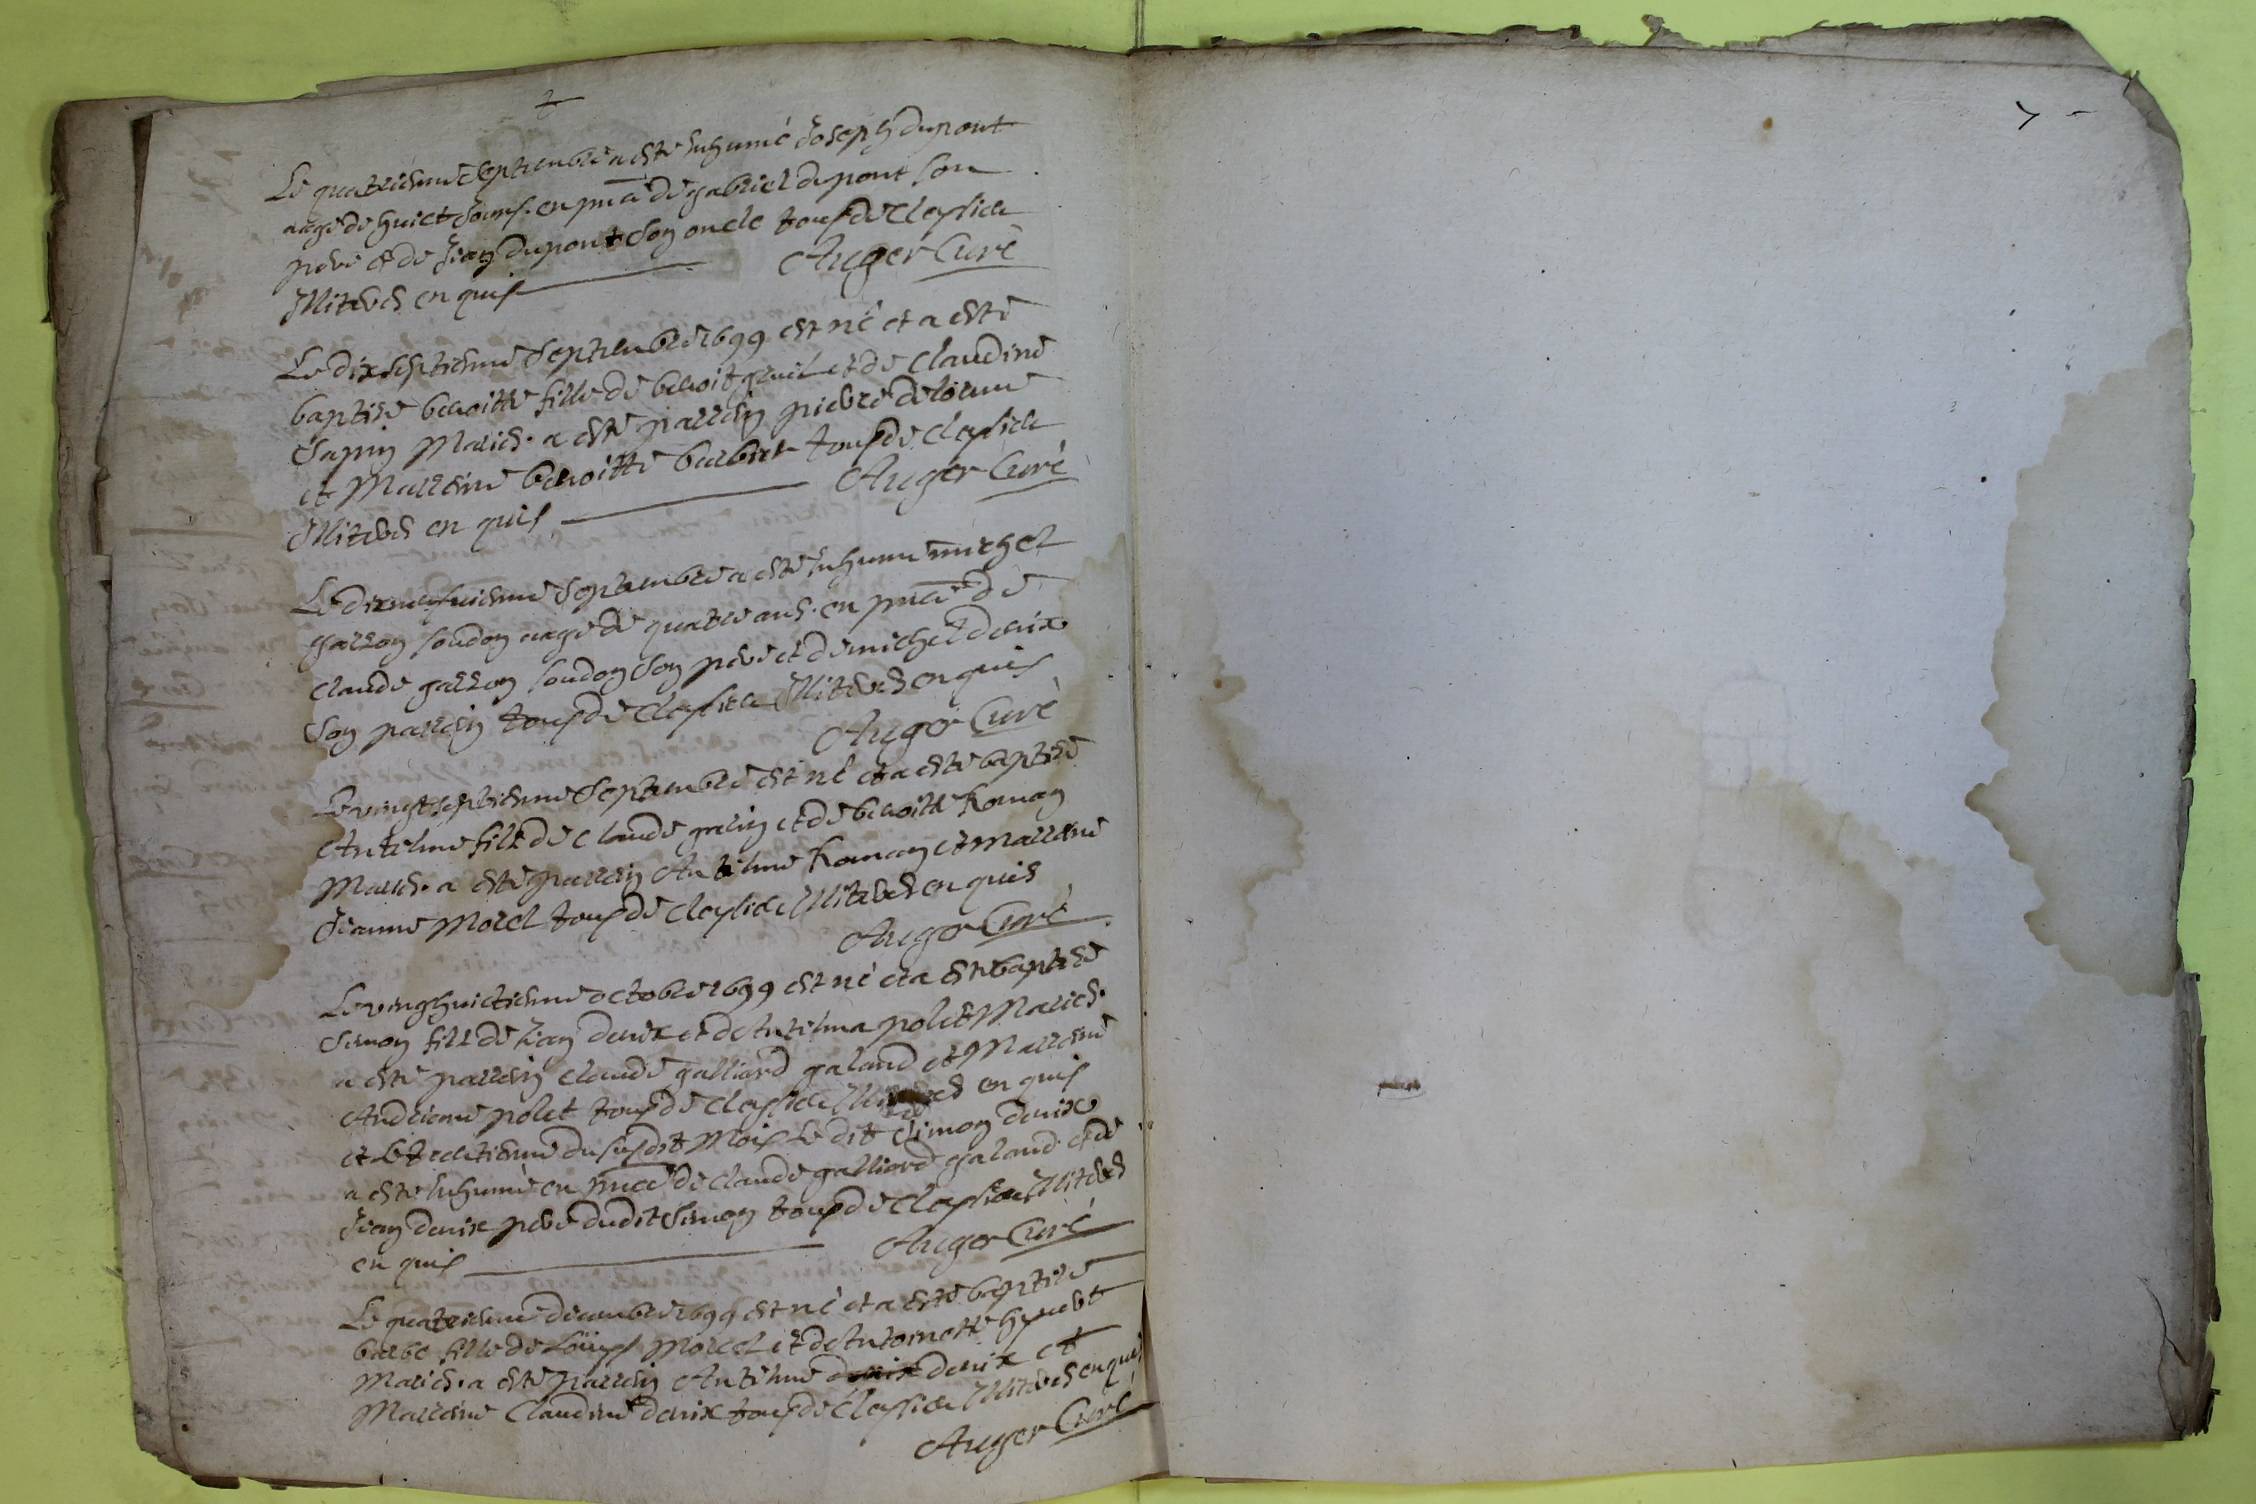 2
Le quatriesme septembre a esté inhumé Joseph dupont
aagé de huict Jours. en pnce de gabriel dupont son
pere & de Jean dupont son oncle tous de Cleysieu
Illiterés en quis Auger Curé
Le dix septiesme septembre 1699 est né et a esté
baptisé benoitte fille de benoit et de Claudine
Sapin Mariés. a esté parrein pierre delorme
et Marreine benoitte barbier tous de Cleysieu
Illiterés en quis Auger Curé
Le dixneufuiesme septembre a esté inhumé michel
garron soudon aagé de quatre ans. en pnce de
Claude garron soudon son pere et de michel denix
son parrein tous de Cleysieu Illiterés en quis
Auger Curé
Le vingt septiesme septembre est né et a esté baptisé
Antelme filz de Claude et de benoitte Roman
Mariés. a esté parrein Antelme Roman et marreine
Jeanne Morel tous de Cleysieu Illiterés en quis
Auger Curé
Le vinghuictiesme octobre 1699 est né et a esté baptisé
Simon filz de Jean denix et de Antelma polet Mariés.
a esté parrein Claude galliard galand et Marreine
Andreane polet tous de Cleysieu en quis
et le du susdit Mois Le dit Simon denix
a esté inhumé en pnce de Claude galliard galand et de
Jean denix pere dudit Simon tous de Cleysieu Illiterés
en quis Auger Curé
Le quatriesme decembre 1699 est né et a esté baptisé
barbe fille de Louys Morel et de Antoinette
Mariés. a esté parrein Antelme denix et
Marreine Claudine denix tous de Cleysieu Illiterés en quis
Auger Curé
7